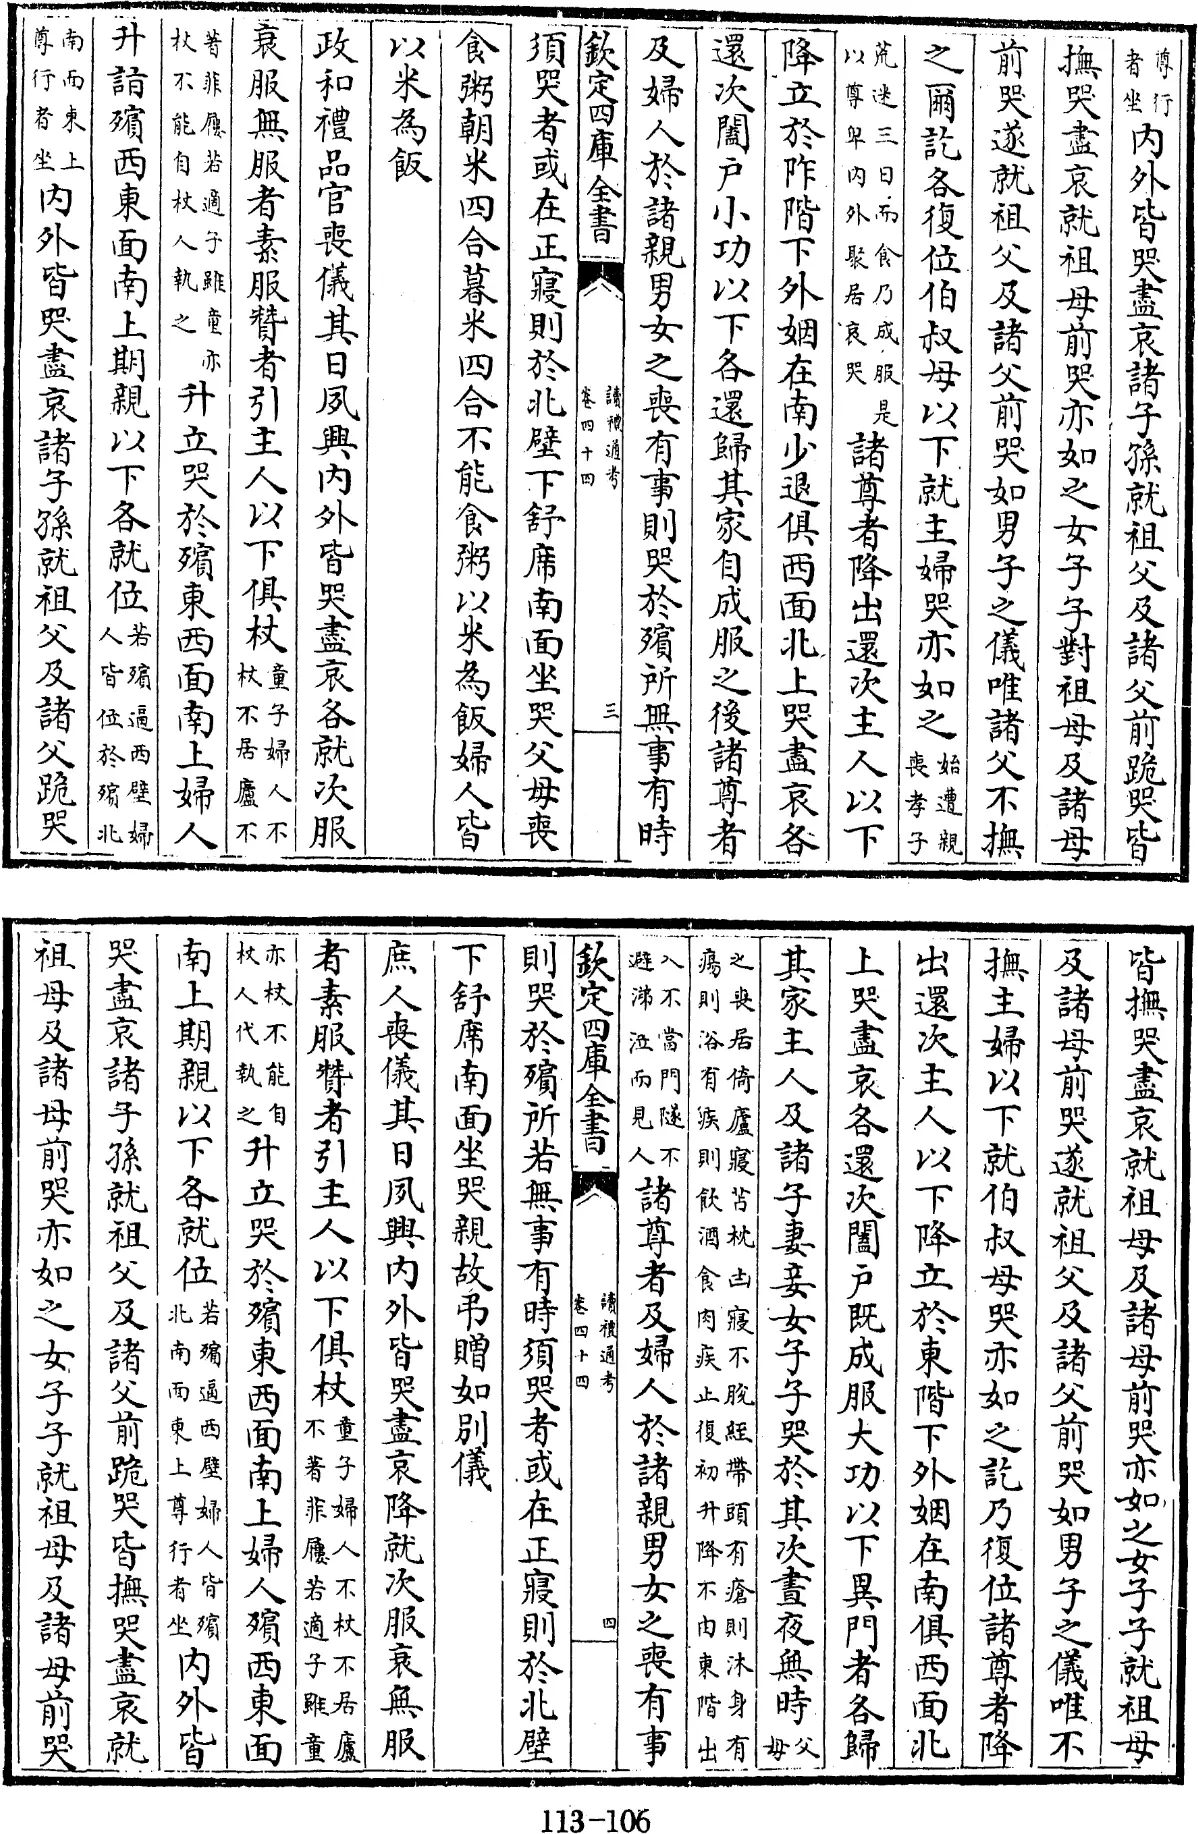 尊行者坐内外皆哭盡哀諸子孫就祖父及諸父前跪哭皆
撫哭盡哀就祖母前哭亦如之女子子對祖母及諸母
前哭遂就祖父及諸父前哭如男子之儀唯諸父不撫
之爾訖各復位伯叔母以下就主婦哭亦如之始遭親喪孝子
荒迷三日而食乃成服是以尊卑内外聚居哀哭諸尊者降出還次主人以下
降立於阼階下外姻在南少退俱西面北上哭盡哀各
還次闔户小功以下各還歸其家自成服之後諸尊者
及婦人於諸親男女之喪有事則哭於殯所無事有時
欽定四庫全書 讀禮通考卷四十四 三
須哭者或在正寢則於北壁下舒席南面坐哭父母喪
食粥朝米四合暮米四合不能食粥以米為飯婦人皆
以米為飯
政和禮品官喪儀其日夙興内外皆哭盡哀各就次服
衰服無服者素服贊者引主人以下俱杖童子婦人不杖不居廬不
著菲屨若適子雖童亦杖不能自杖人執之升立哭於殯東西面南上婦人
升詣殯西東面南上期親以下各就位若殯逼西壁婦人皆位於殯北
南面東上尊行者坐内外皆哭盡哀諸子孫就祖父及諸父跪哭
皆撫哭盡哀就祖母及諸母前哭亦如之女子子就祖母
及諸母前哭遂就祖父及諸父前哭如男子之儀唯不
撫主婦以下就伯叔母哭亦如之訖乃復位諸尊者降
出還次主人以下降立於東階下外姻在南俱西面北
上哭盡哀各還次闔户既成服大功以下異門者各歸
其家主人及諸子妻妾女子子哭於其次晝夜無時父母
之喪居倚廬寢苫枕凷寢不脱絰帶頭有瘡則沐身有瘍則浴有疾則飲酒食肉疾止復初升降不由東階出
入不當門隧不避涕泣而見人諸尊者及婦人於諸親男女之喪有事
欽定四庫全書 讀禮通考卷四十四 四
則哭於殯所若無事有時須哭者或在正寢則於北壁
下舒席南面坐哭親故弔贈如别儀
庶人喪儀其日夙興内外皆哭盡哀降就次服衰無服
者素服贊者引主人以下俱杖童子婦人不杖不居廬不著菲屨若適子雖童
亦杖不能自杖人代執之升立哭於殯東西面南上婦人殯西東面
南上期親以下各就位若殯逼西壁婦人皆殯北南面東上尊行者坐内外皆
哭盡哀諸子孫就祖父及諸父前跪哭皆撫哭盡哀就
祖母及諸母前哭亦如之女子子就祖母及諸母前哭
113-106